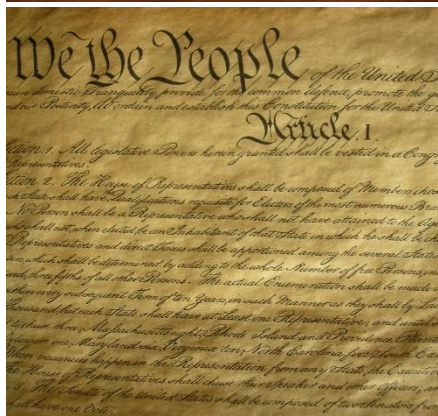 We the People of the United S
domestic Tranquility, provide for the common defence, promote the
Posterity, do ordain and establish this Constitution for the United S
Article. I.
ction. 1. All legislative Powers herein granted shall be vested in a Cong
Representatives.
ction. 2. The House of Representatives shall be composed of Members chos
State shall have Qualifications requisite for Electors of the most numerous Bra
No Person shall be a Representative who shall not have attained to the Age
who shall not, when elected, be an Inhabitant of that State in which he shall be cho
Representatives and direct Taxes shall be apportioned among the several States
which shall be determined by adding to the whole Number of free Persons, in
three fifths of all other Persons. The actual Enumeration shall be made
every subsequent Term of ten Years, in such Manner as they shall by Law
Thousand, but each State shall have at Least one Representative; and until
chuse three, Massachusetts eight, Rhode Island and Providence Plan
Maryland six, Virginia ten, North Carolina five, South Ca
When vacancies happen in the Representation from any State, the Executive
The House of Representatives shall chuse their Speaker and other Officers; an
3. The Senate of the United States shall be composed of two Senators from
shall have one Vote.